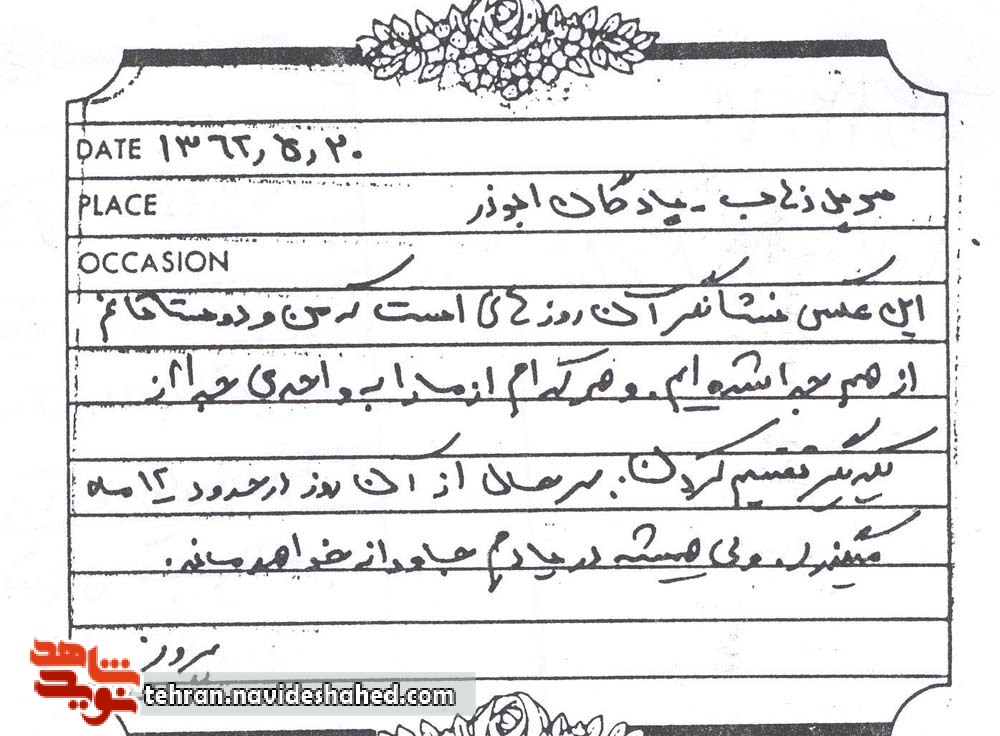 DATE ۱۳٦۲٫۵٫۲۰
PLACE سرپل ذهاب - پادگان ابوذر
OCCASION
این عکس نشانگر آن روزهای است که من و دوستانم
از هم جدا شده ایم. و هر کدام از ما را به واحدی جدا از
یکدیگر تقسیم کردن. بهرحال از آن روز در حدود ۱۲ ماه
میگذرد. ولی همیشه در یادم جاودانه خواهد ماند.
نوید شاهد
tehran.navideshahed.com